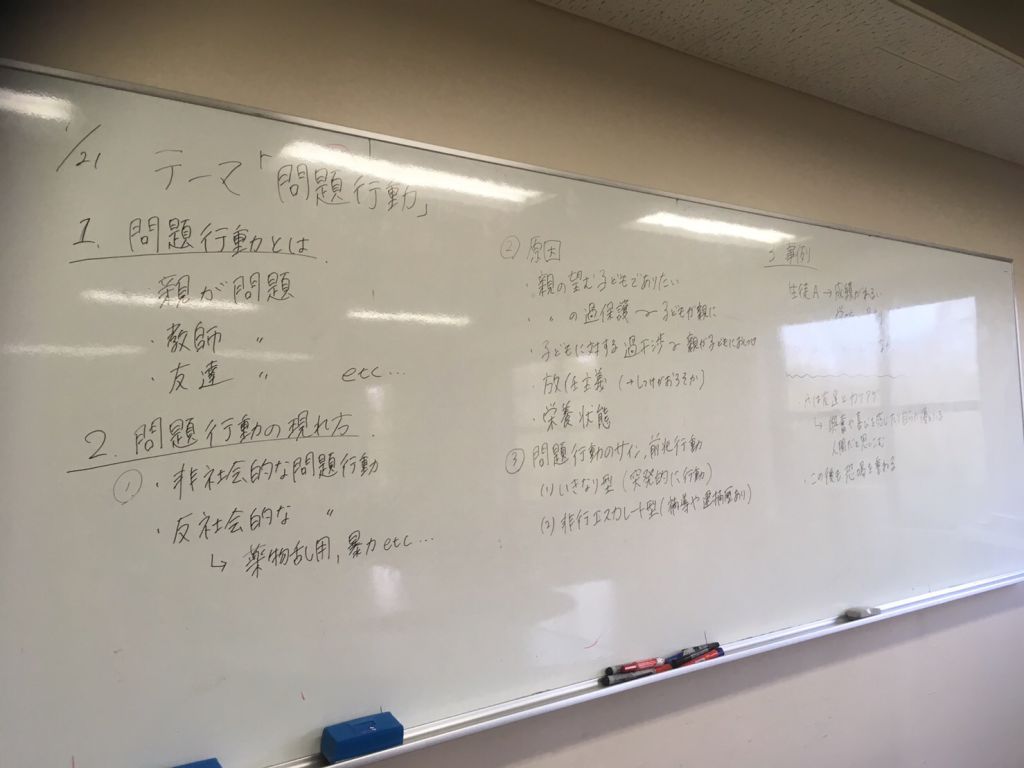 1/21
テーマ「問題行動」
1. 問題行動とは
親が問題
・教師 〃
・友達 〃 etc…
2. 問題行動の現れ方
① ・非社会的な問題行動
・反社会的な 〃
↳ 薬物乱用, 暴力 etc…
② 原因
・親の望む子どもでありたい
・〃 の過保護 〜 子どもが親に
・子どもに対する過干渉 〜 親が子どもに
・放任主義 (→しつけがおろそか)
・栄養状態
③ 問題行動のサイン, 前兆行動
(1) いきなり型 (突発的に行動)
(2) 非行エスカレート型 (補導や逮捕歴あり)
3 事例
生徒A → 成績がわるい
人間だと思いこむ
・この後も恐喝を重ねる